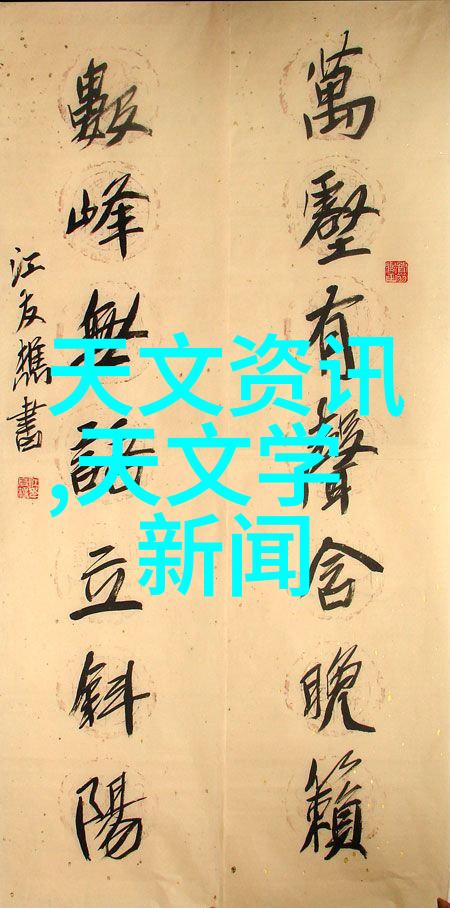 萬壑有聲含晚籟
數峰無語立斜陽
江友樵書
天文资讯
,天文学
新闻